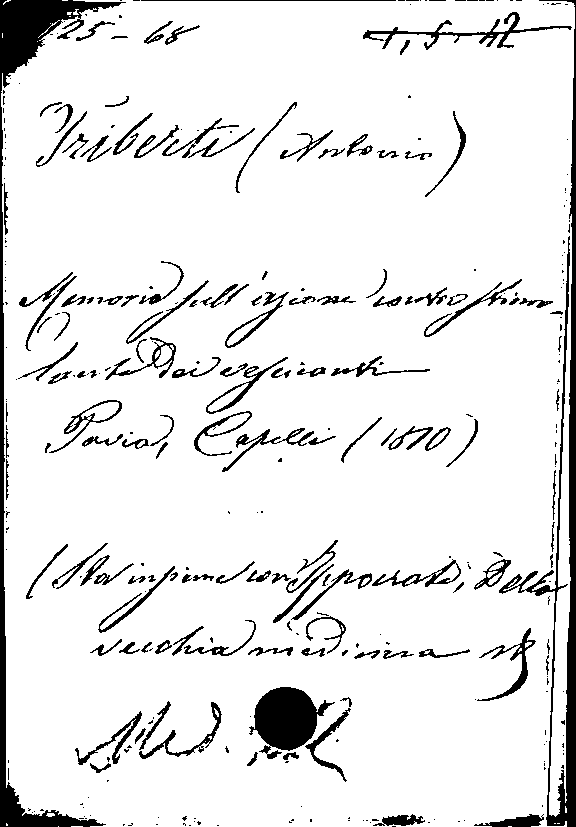 25-68 1, 5. 42
Triberti (Antonio)
Memoria sull'azione controstimo-
lante dei vescicanti
Pavia, Capelli (1810)
(Sta insieme con Ippocrate, Della
vecchia medicina
Med.